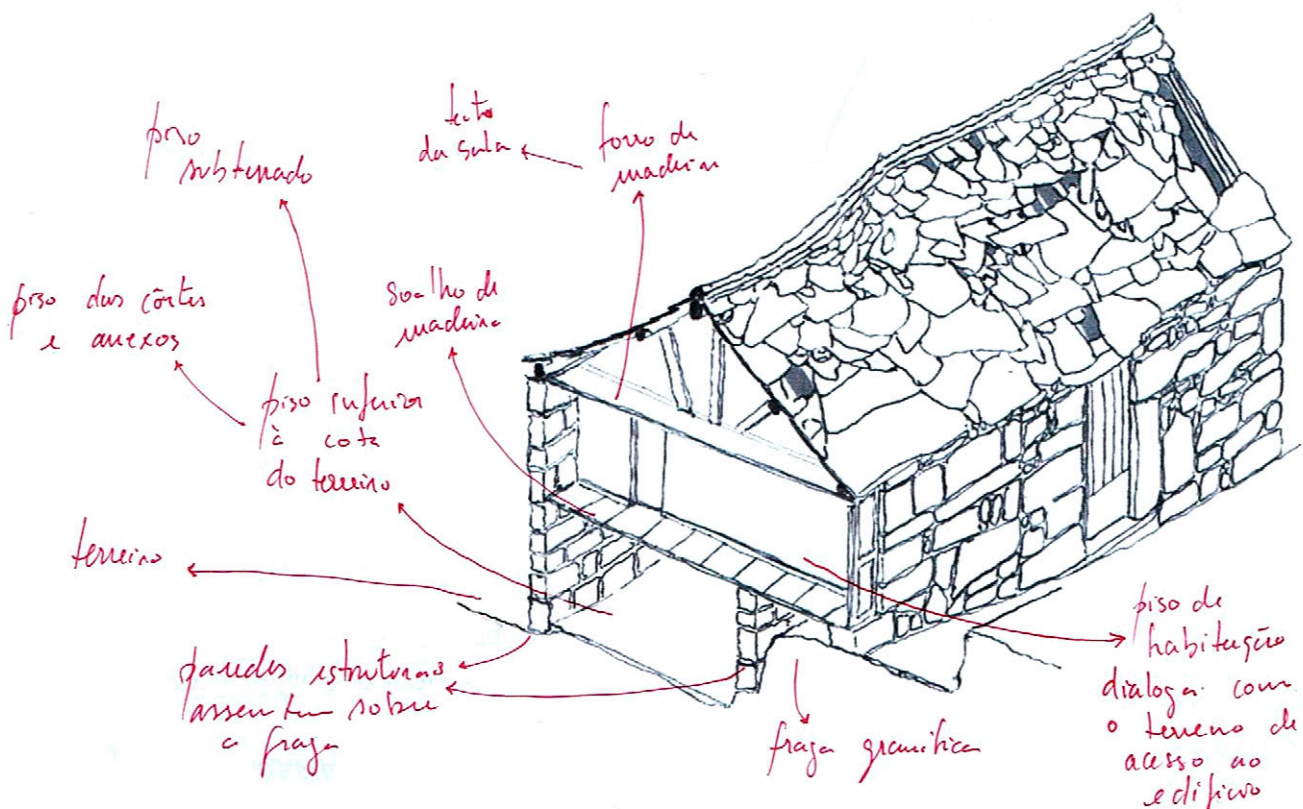 piso
subterrado
teto
da sala
forro de
madeira
piso das côrtes
e anexos
soalho de
madeira
piso inferior
à cota
do terreiro
terreiro
paredes estruturais
assentam sobre
a fraga
fraga granítica
piso de
habitação
dialoga com
o terreno de
acesso ao
edifício